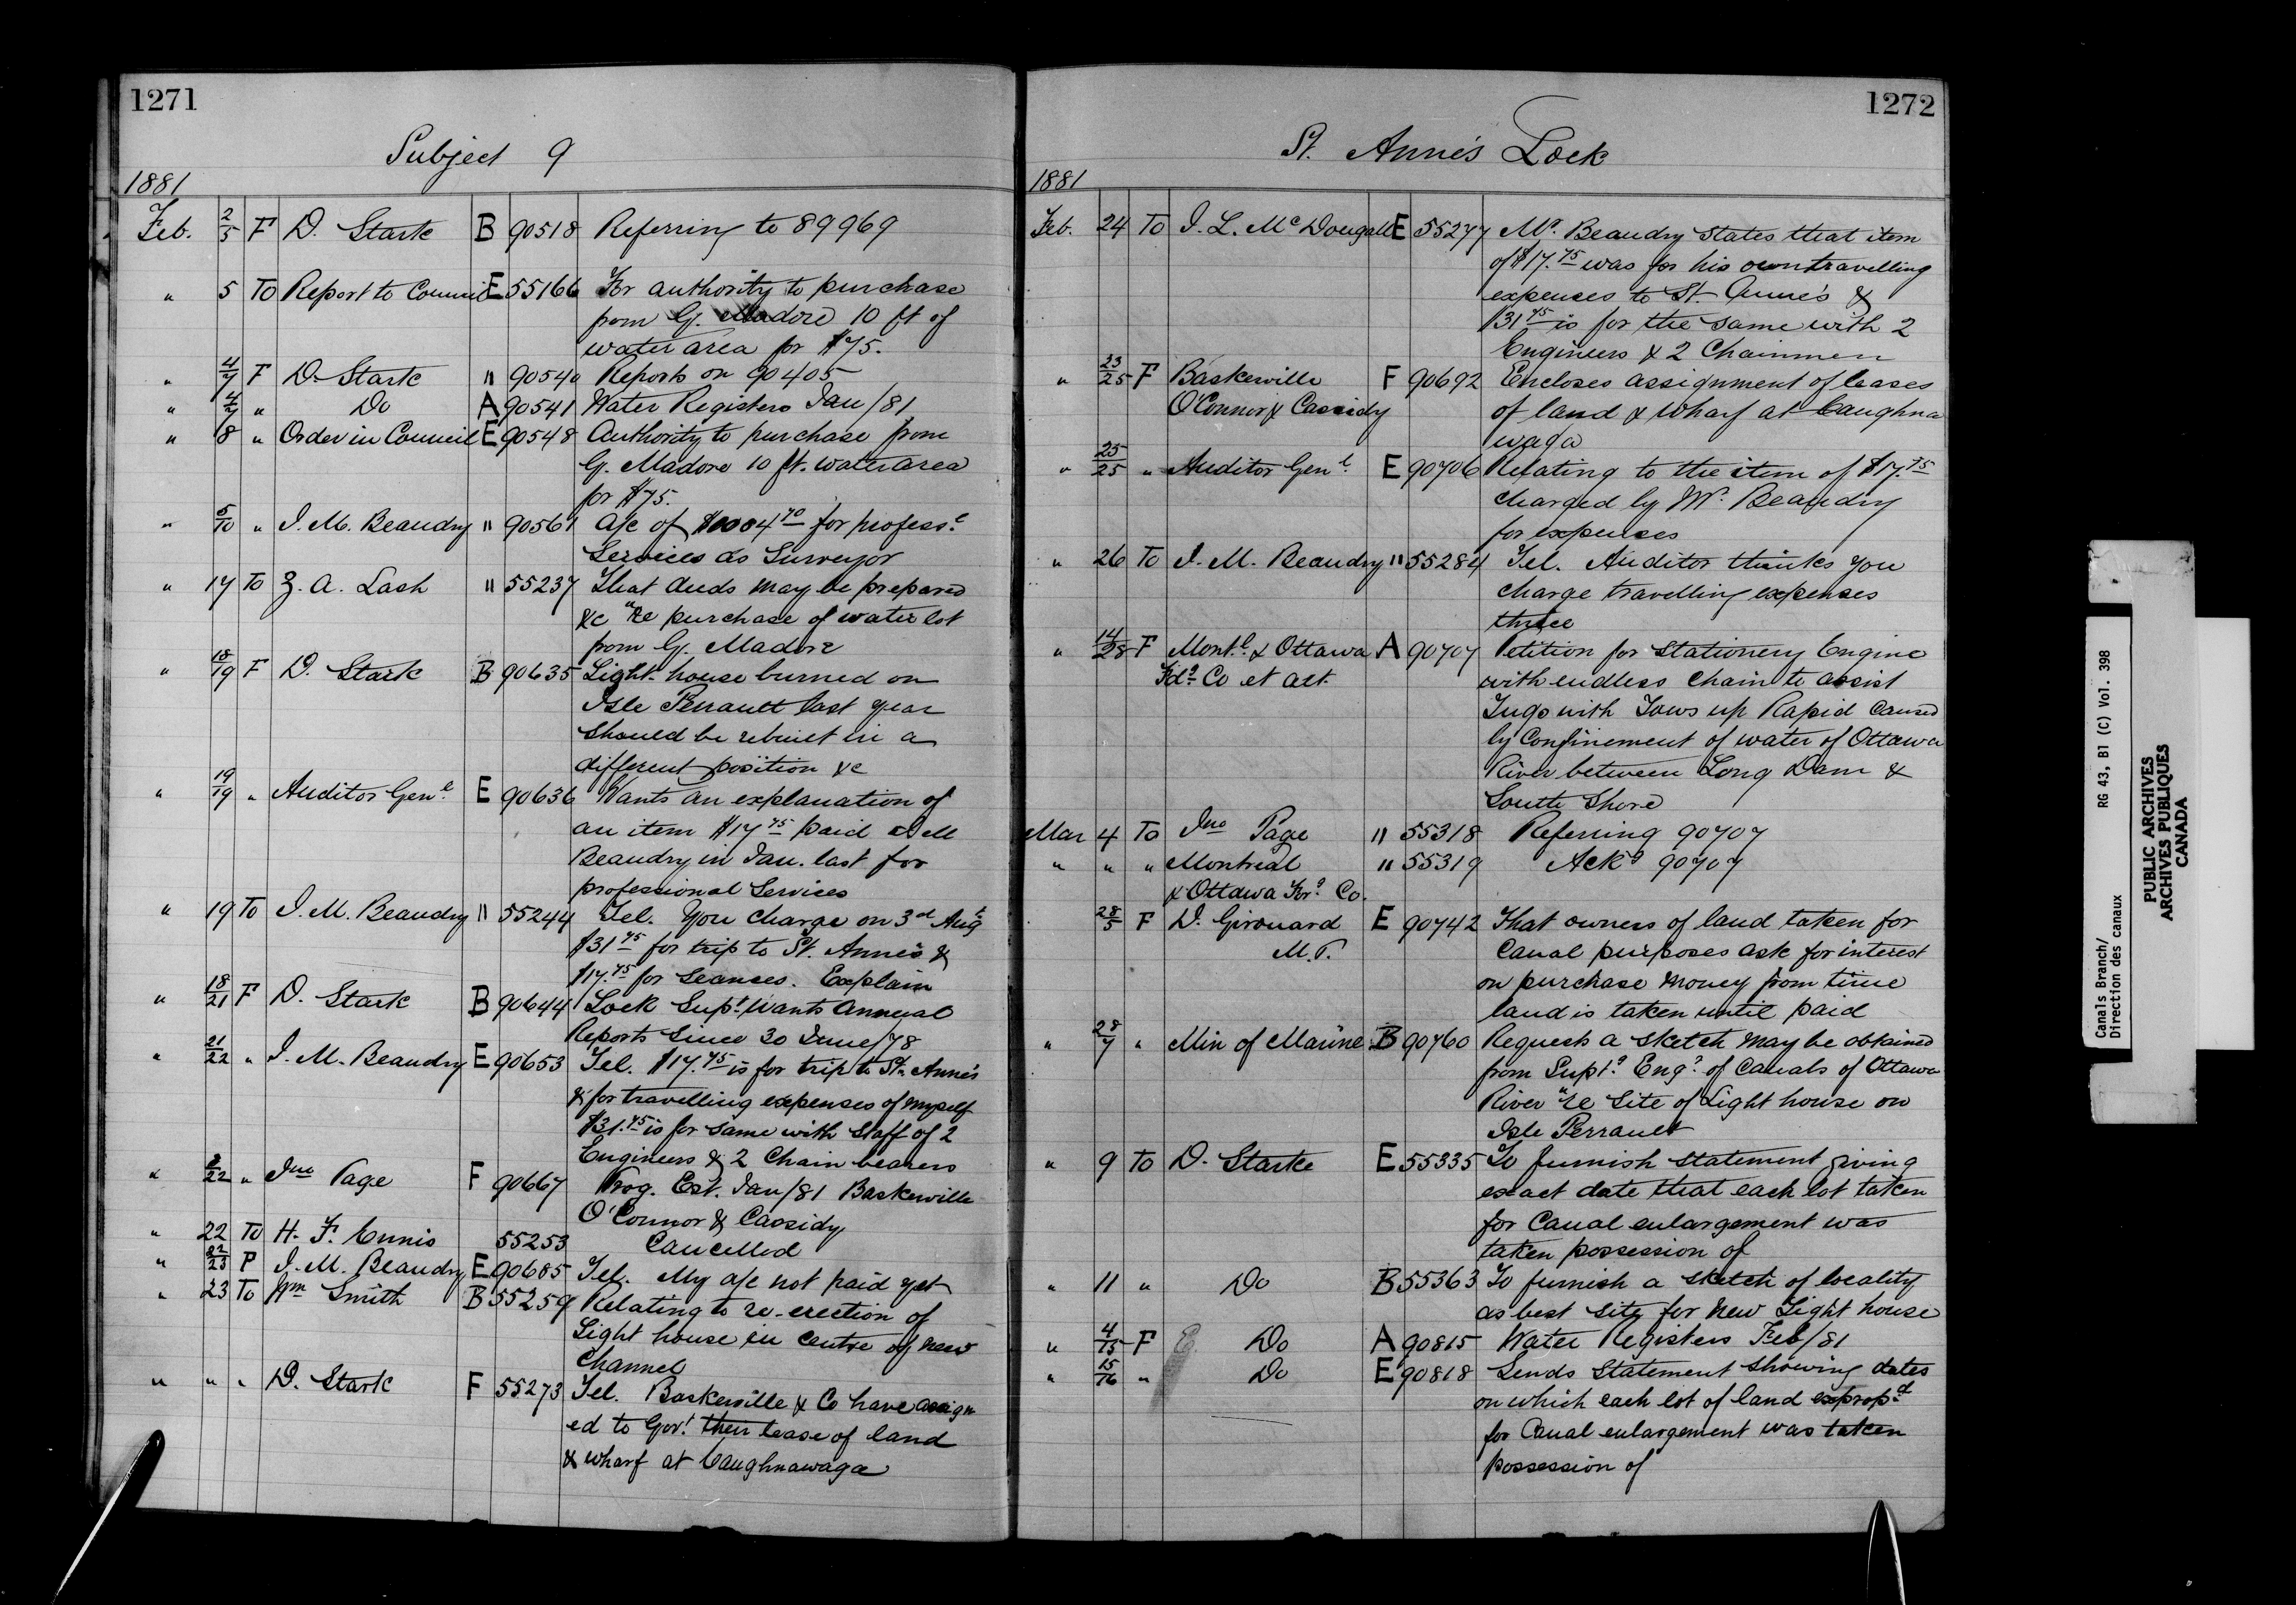 1271
Subject 9
1881
Feb. 2/5 F D. Stark B 90518 Referring to 89969
" 5 To Report to Council E 55166 For authority to purchase
from G. Madore 10 ft of
water area for $75.
" 4/7 F D. Stark " 90540 Reports on 90405
" 4/7 " Do A 90541 Water Registers Jan/81
" 8 " Order in Council E 90548 Authority to purchase from
G. Madore 10 ft. water area
for $75.
" 5/10 " J. M. Beaudry " 90561 a/c of $1004 70 for profess.l
Services as Surveyor
" 17 To Z. A. Lash " 55237 That deeds may be prepared
&c "re purchase of water lot
from G. Madore
" 18/19 F D. Stark B 90635 Light-house burned on
Isle Perrault last year
should be rebuilt in a
different position &c
" 19/19 " Auditor Genl. E 90636 Wants an explanation of
an item $17 75 paid J M
Beaudry in Jan. last for
professional Services
" 19 To J. M. Beaudry " 55244 Tel. You charge on 3rd Augt
$31 75 for trip to St. Anne's &
$17.75 for seances. Explain
" 18/21 F D. Stark B 90644 Lock Supt. wants Annual
Reports since 30 June/78
" 21/22 " J. M. Beaudry E 90653 Tel. $17.75 is for trip to St. Anne's
& for travelling expenses of myself
$31.75 is for same with staff of 2
Engineers & 2 Chain bearers
" /22 " Jno Page F 90667 Prog. Est. Jan/81 Baskerville
O'Connor & Cassidy
" 22 To H. F. Ennis 55253 Cancelled
" 22/23 F J. M. Beaudry E 90685 Tel. My a/c not paid yet
" 23 To Wm Smith B 55259 Relating to re-erection of
Light house in centre of new
Channel
" " " D. Stark F 55273 Tel. Baskerville & Co have assign
ed to Govt. their lease of land
& wharf at Caughnawaga
1272
St. Anne's Lock
1881
Feb. 24 To J. L. McDougall E 55277 Mr. Beaudry states that item
of $17.75 was for his own travelling
expenses to St. Anne's &
$31 75 is for the same with 2
Engineers & 2 Chainmen
" 23/25 F Baskerville F 90692 Encloses assignment of leases
O'Connor & Cassidy of land & wharf at Caughna
waga
" 25/25 " Auditor Genl. E 90706 Relating to the item of $17.75
charged by Mr. Beaudry
for expenses
" 26 To J. M. Beaudry " 55284 Tel. Auditor thinks you
charge travelling expenses
thrice
" 14/28 F Mont.l & Ottawa A 90707 Petition for Stationery Engine
Fd.g Co et al with endless chain to assist
Tugs with Tows up Rapid caused
by Confinement of water of Ottawa
River between Long Dam &
South Shore
Mar 4 To Jno Page " 55318 Referring 90707
" " " Montreal " 55319 Ackg 90707
& Ottawa For.g Co.
28/5 F D. Girouard E 90742 That owners of land taken for
M.P. Canal purposes ask for interest
on purchase money from time
land is taken until paid
" 28/7 " Min of Marine B 90760 Requests a sketch may be obtained
from Supt.g Eng.r of Canals of Ottawa
River "re site of Light house on
Isle Perrault
" 9 To D. Starke E 55335 To furnish statement giving
exact date that each lot taken
for Canal enlargement was
taken possession of
" 11 " Do B 55363 To furnish a sketch of locality
as best site for new Light house
" 4/15 F Do A 90815 Water Registers Feb/81
" 15/16 " Do E 90818 Sends Statement showing dates
on which each lot of land exprop.d
for Canal enlargement was taken
possession of
Canals Branch/
Direction des canaux
RG 43, B1 (C) Vol. 398
PUBLIC ARCHIVES
ARCHIVES PUBLIQUES
CANADA